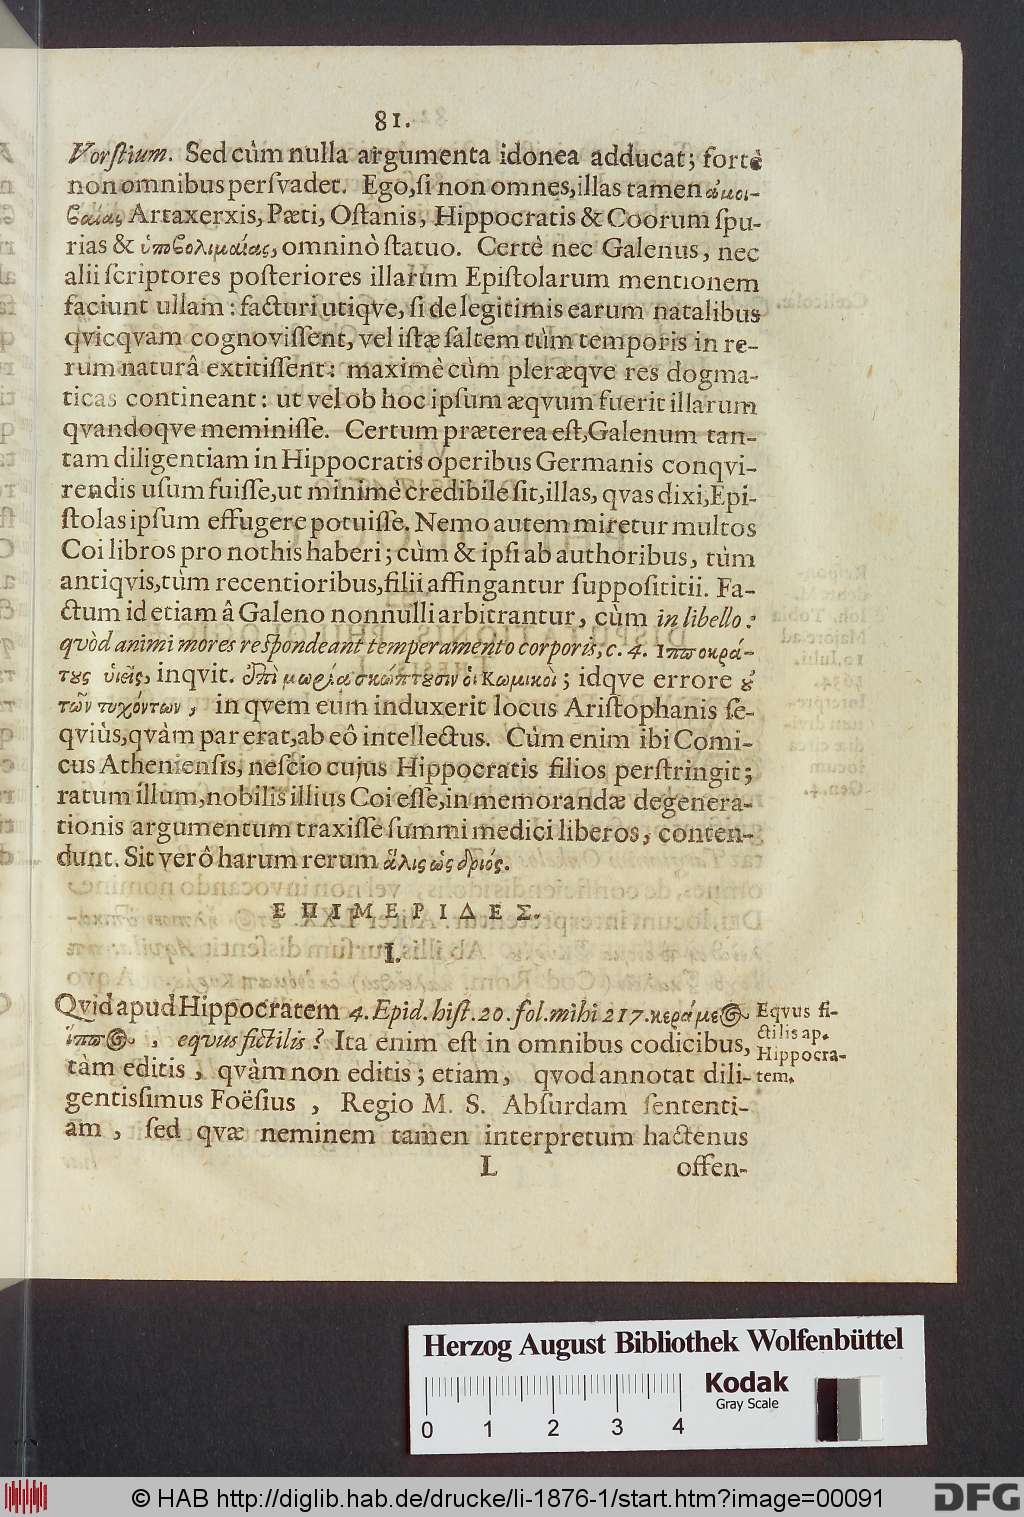 81.
Vorſtium. Sed cùm nulla argumenta idonea adducat; fortè
non omnibus perſvadet. Ego, ſi non omnes, illas tamen ἀμοι-
βαίας Artaxerxis, Pæti, Oſtanis, Hippocratis & Coorum ſpu-
rias & ὑποβολιμαίας, omninò ſtatuo. Certè nec Galenus, nec
alii ſcriptores poſteriores illarum Epiſtolarum mentionem
faciunt ullam: facturi utiqve, ſi de legitimis earum natalibus
qvicqvam cognoviſſent, vel iſtæ ſaltem tùm temporis in re-
rum naturâ extitiſſent: maximè cùm pleræqve res dogma-
ticas contineant: ut vel ob hoc ipſum æqvum fuerit illarum
qvandoqve meminiſſe. Certum præterea eſt, Galenum tan-
tam diligentiam in Hippocratis operibus Germanis conqvi-
rendis uſum fuiſſe, ut minimè credibile ſit, illas, qvas dixi, Epi-
ſtolas ipſum effugere potuiſſe. Nemo autem miretur multos
Coi libros pro nothis haberi; cùm & ipſi ab authoribus, tùm
antiqvis, tùm recentioribus, filii affingantur ſuppoſititii. Fa-
ctum id etiam â Galeno nonnulli arbitrantur, cùm in libello:
quòd animi mores respondeant temperamento corporis, c. 4. Ἱπποκρά-
τους ὑιεῖς, inqvit. ἐπὶ μωρίᾳ σκώπτουσιν ὁι Κωμικοὶ; idqve errore ȣ
τῶν τυχόντων, in qvem eum induxerit locus Ariſtophanis ſe-
qviùs, qvàm par erat, ab eô intellectus. Cùm enim ibi Comi-
cus Athenienſis, neſcio cujus Hippocratis filios perſtringit;
ratum illum, nobilis illius Coi eſſe, in memorandæ degenera-
tionis argumentum traxiſſe ſummi medici liberos, conten-
dunt. Sit verô harum rerum ἅλις ὡς δριός.
ΕΠΙΜΕΡΙΔΕΣ.
I.
Qvid apud Hippocratem 4. Epid. hiſt. 20. fol. mihi 217. κεράμεος
ἵππος, eqvus fictilis? Ita enim eſt in omnibus codicibus,
tàm editis, qvàm non editis; etiam, qvod annotat dili-
gentisſimus Foëſius, Regio M. S. Abſurdam ſententi-
am, ſed qvæ neminem tamen interpretum hactenus
Eqvus fi-
ctilis ap.
Hippocra-
tem.
L
offen-
Herzog August Bibliothek Wolfenbüttel
Kodak
Gray Scale
0 1 2 3 4
© HAB http://diglib.hab.de/drucke/li-1876-1/start.htm?image=00091
DFG